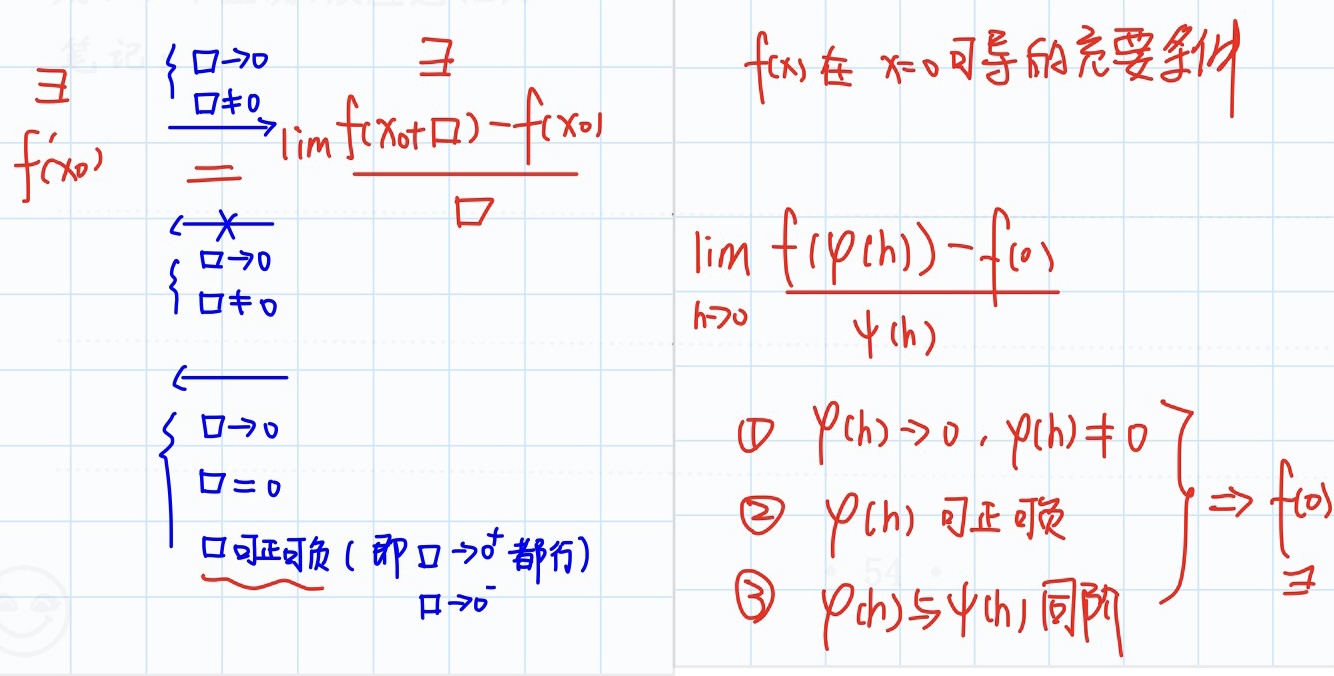 笔记
∃
f'(x₀)
{ □→0
□≠0
⟶
=
∃
lim f(x₀+□)-f(x₀)
□
⟵ ×
{ □→0
□≠0
⟵
{ □→0
□=0
□可正可负(即□→0⁺都行)
□→0⁻
f(x)在x=0可导的充要条件
lim f(φ(h))-f(0)
h→0 ψ(h)
① φ(h)→0,φ(h)≠0
② φ(h)可正可负
③ φ(h)与ψ(h)同阶
⇒ f(0)
∃
54